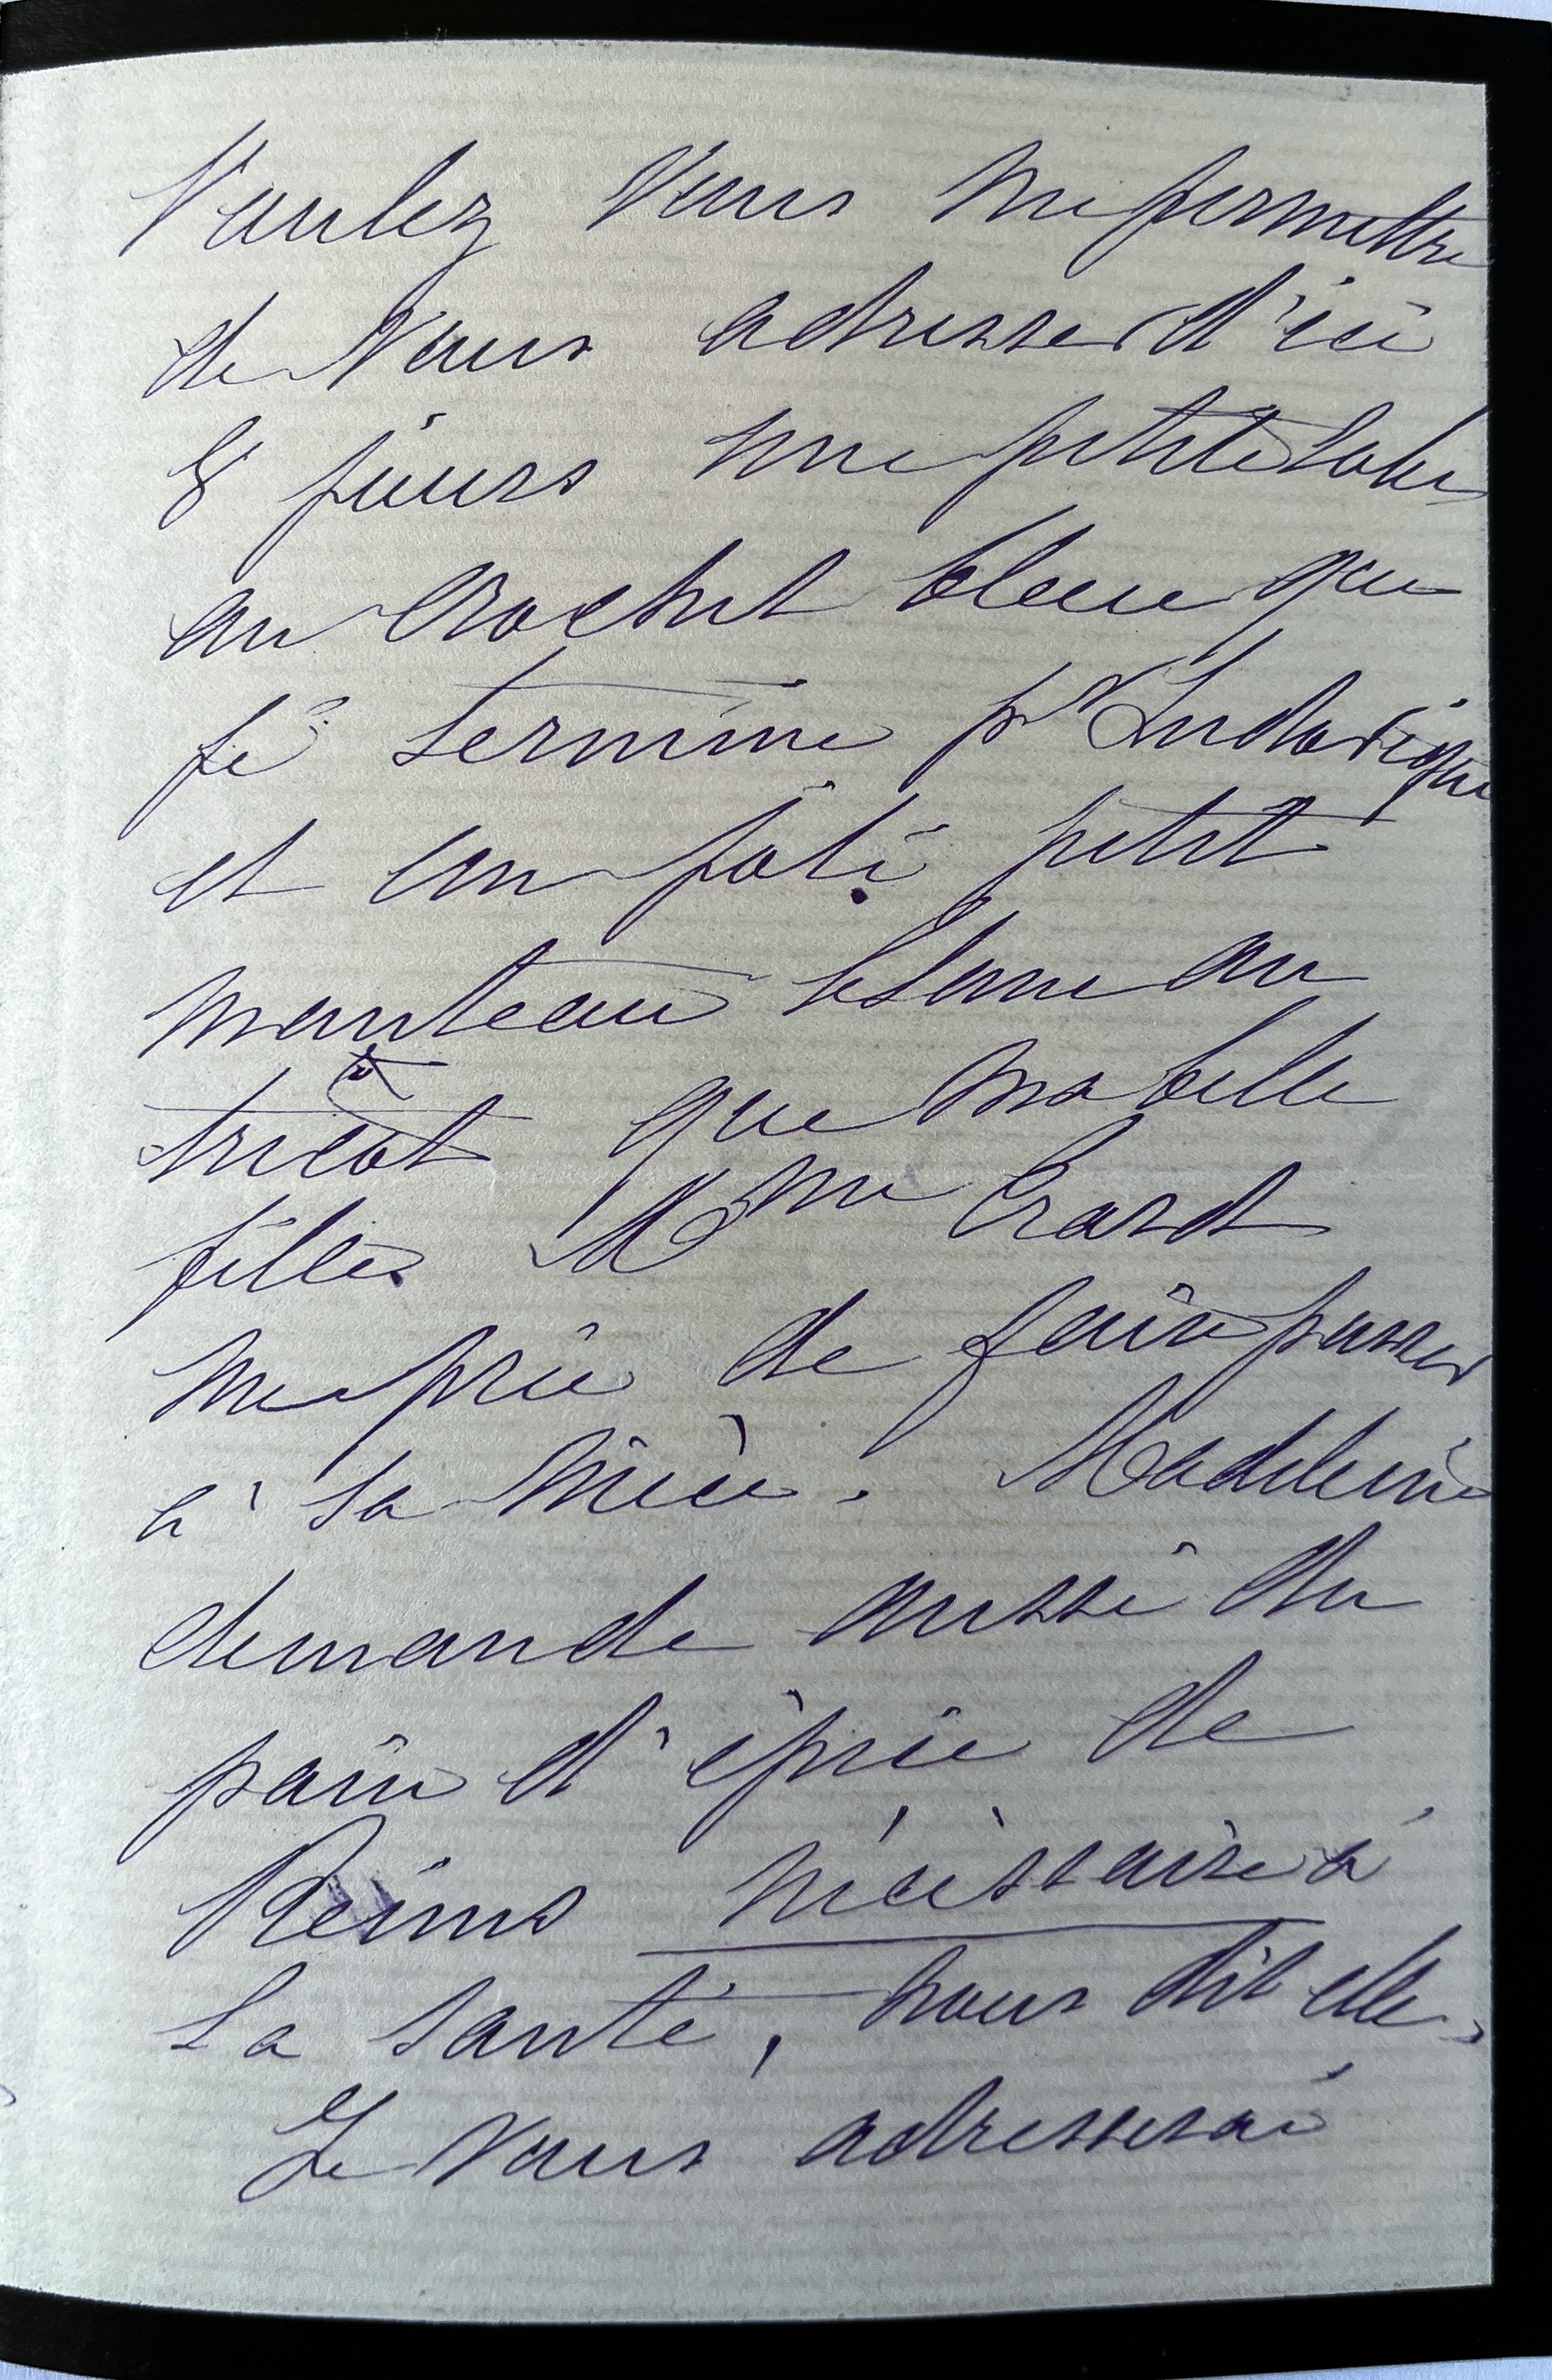 Voulez Vous me permettre
de Vous adresser d'ici
8 jours une petite robe
au crochet bleue que
je termine pr Ludovique
et un joli petit
manteau blanc au
tricot que ma belle
fille Mme Crard
me prie de faire passer
à sa nièce. Madeleine
demande aussi du
pain d'épice de
Reims nécessaire à
la santé, nous dit elle,
Je vous adresserai